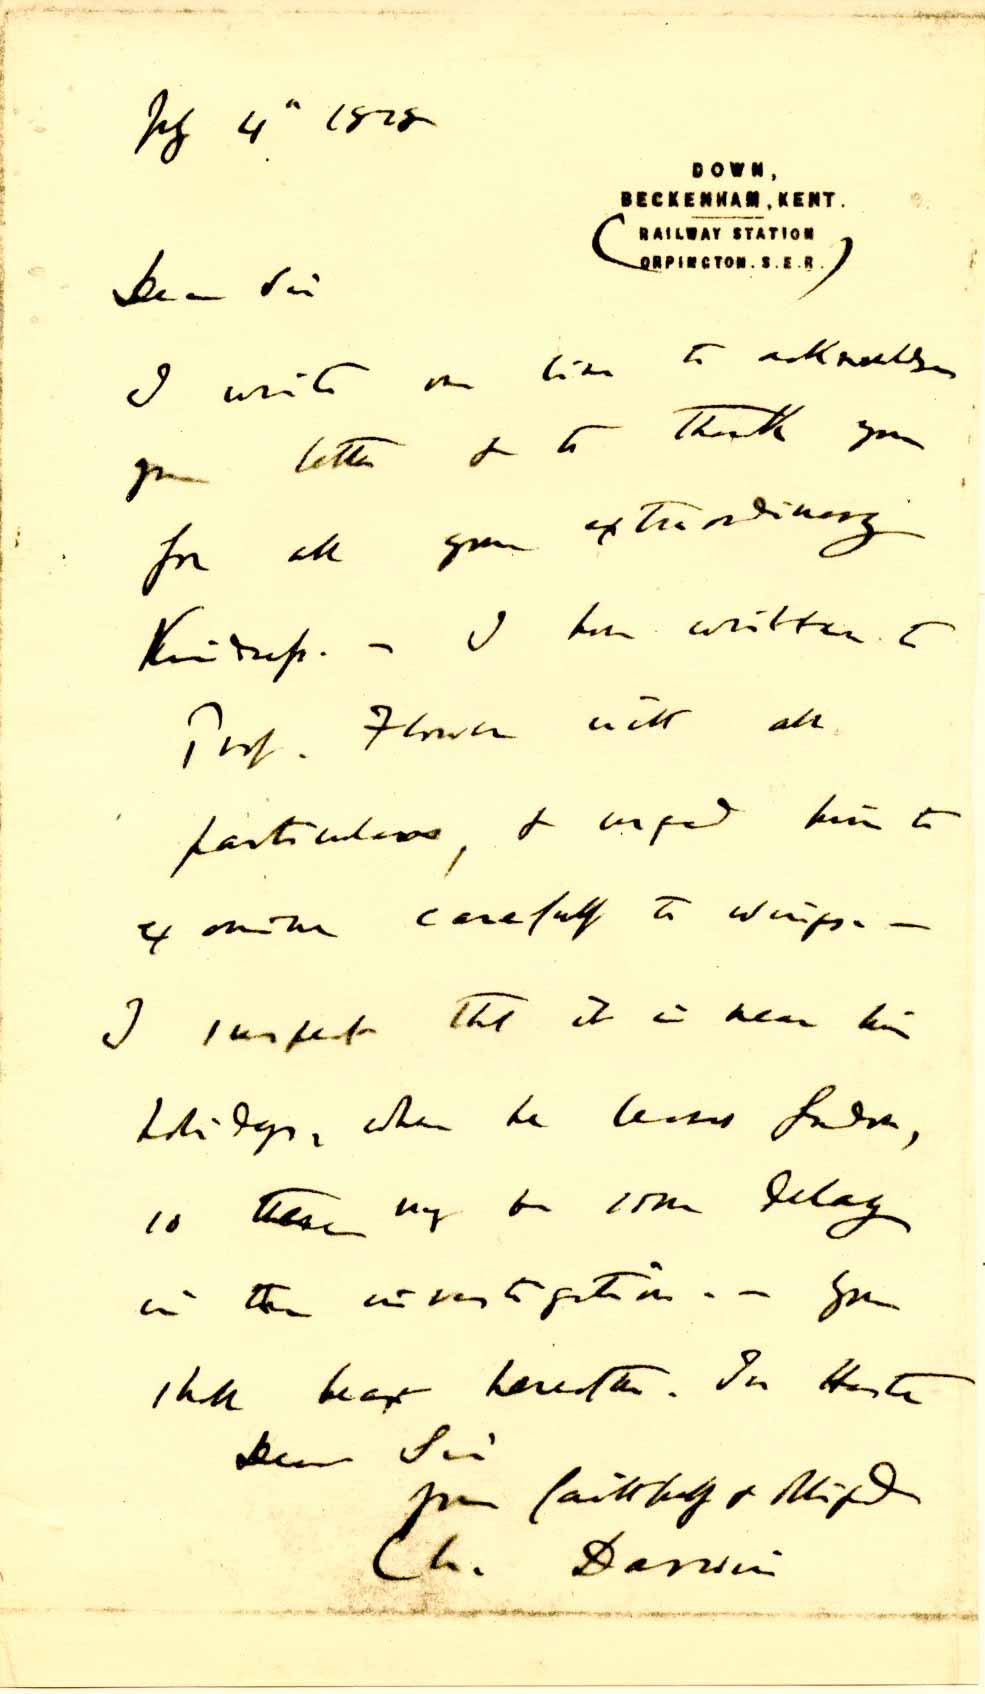 July 4th 1878
DOWN,
BECKENHAM, KENT.
(RAILWAY STATION
ORPINGTON. S.E.R.)
Dear Sir
I write one line to acknowledge
your letter & to thank you
for all your extraordinary
kindness. — I have written to
Prof. Flower with all
particulars, & urged him to
examine carefully the wings. —
I suspect that it is near his
holidays, when he leaves London,
so there may be some delay
in the investigation. — You
shall hear hereafter. In Haste
Dear Sir
yours faithfully & obliged
Ch. Darwin